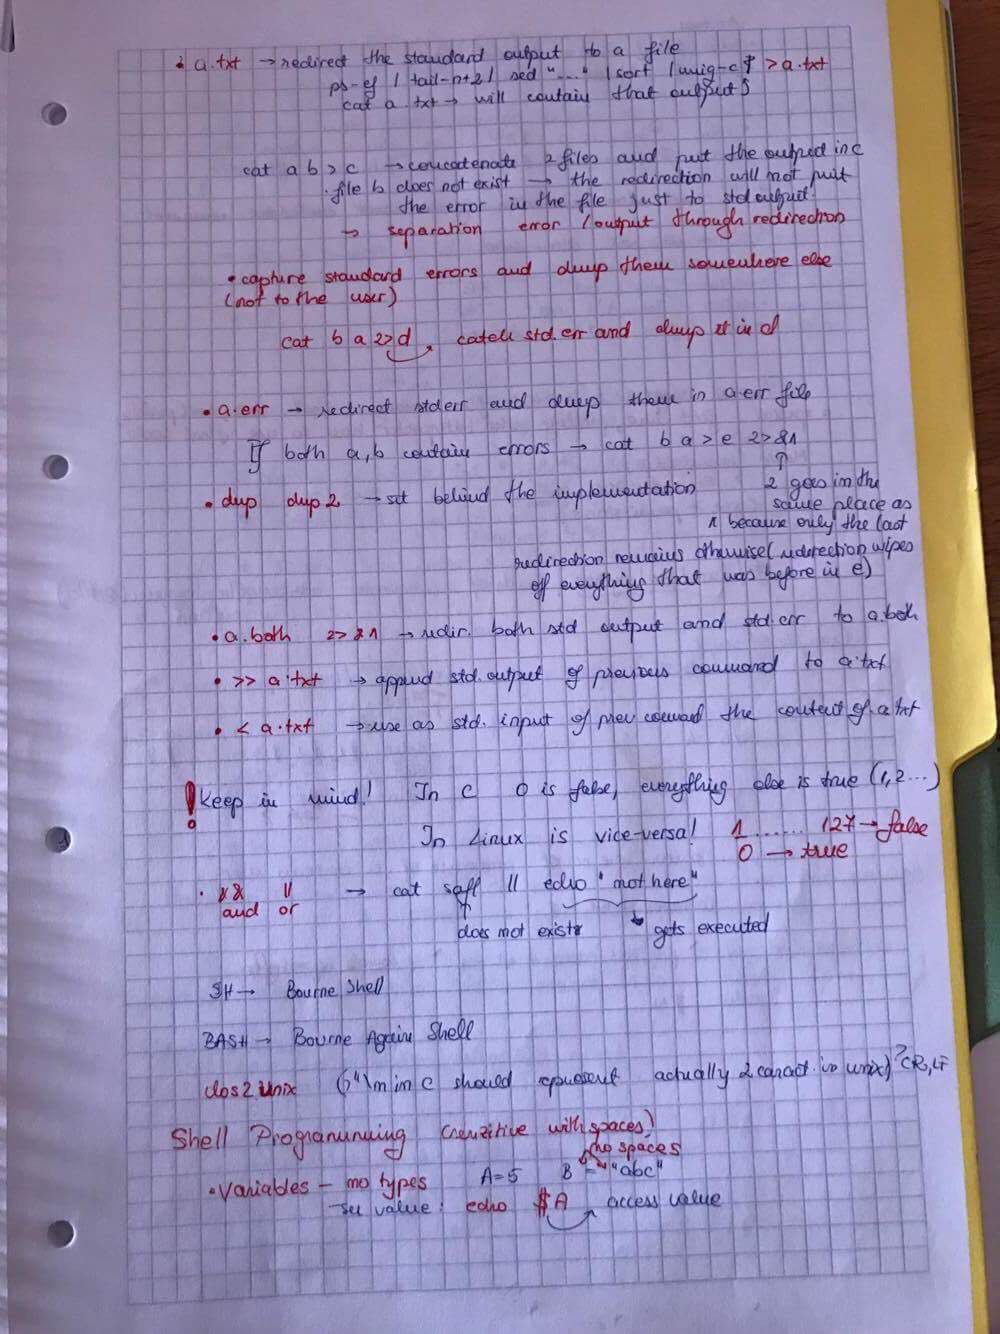 • a.txt → redirect the standard output to a file
ps -ef | tail -n+2 | sed "....." | sort | uniq -c > a.txt
cat a.txt → will contain that output
cat a b > c → concatenate 2 files and put the output in c
• file b does not exist → the redirection will not put
the error in the file just to std output.
→ separation error / output through redirection
• capture standard errors and dump them somewhere else
(not to the user)
cat b a 2>d, catch std.err and dump it in d
• a.err → redirect std err and dump them in a.err file
If both a, b contain errors → cat b a > e 2>&1
↑
• dup dup 2 → sit behind the implementation
2 goes in the
same place as
1 because only the last
redirection remains otherwise (redirection wipes
off everything that was before in e)
• a.both 2>&1 → redir. both std output and std.err to a.both
• >> a.txt → append std.output of previous command to a.txt
• < a.txt → use as std. input of prev command the content of a.txt
! Keep in mind! In C 0 is false, everything else is true (1,2...)
In Linux is vice-versa! 1 ...... 127 → false
0 → true
• && || → cat saff || echo "not here"
and or
does not exist gets executed
SH → Bourne Shell
BASH → Bourne Again Shell
dos2unix \n in C should represent actually 2 caract. in unix) ? CR, LF
Shell Programming (senzitive with spaces)
no spaces
• Variables – no types A=5 B="abc"
– see value: echo $A access value